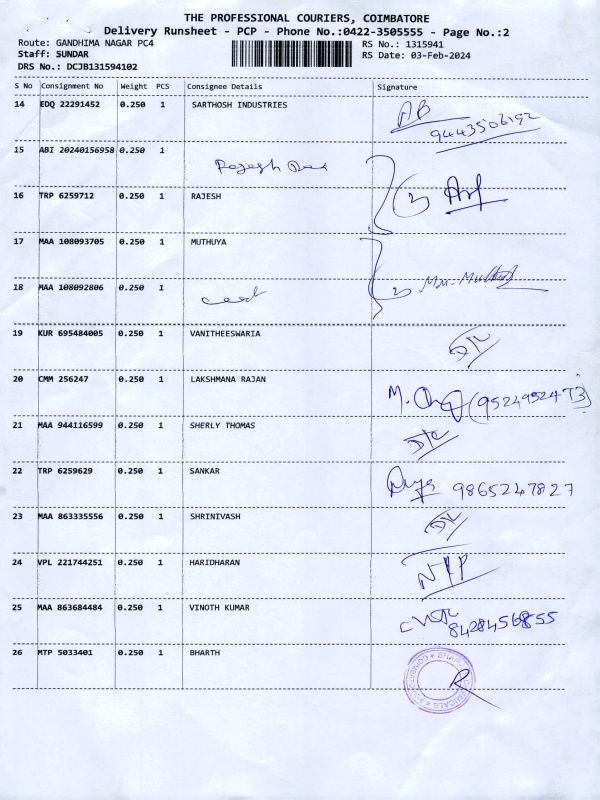 THE PROFESSIONAL COURIERS, COIMBATORE
Delivery Runsheet - PCP - Phone No.:0422-3505555 - Page No.:2
Route: GANDHIMA NAGAR PC4 RS No.: 1315941
Staff: SUNDAR RS Date: 03-Feb-2024
DRS No.: DCJB131594102
S No Consignment No Weight PCS Consignee Details Signature
14 EDQ 22291452 0.250 1 SARTHOSH INDUSTRIES
9443506192
15 ABI 20240156958 0.250 1
16 TRP 6259712 0.250 1 RAJESH
17 MAA 108093705 0.250 1 MUTHUYA
18 MAA 108092806 0.250 1
19 KUR 695484005 0.250 1 VANITHEESWARIA
20 CMM 256247 0.250 1 LAKSHMANA RAJAN
21 MAA 944116599 0.250 1 SHERLY THOMAS
22 TRP 6259629 0.250 1 SANKAR 9865247827
23 MAA 863335556 0.250 1 SHRINIVASH
24 VPL 221744251 0.250 1 HARIDHARAN
25 MAA 863684484 0.250 1 VINOTH KUMAR
8428456855
26 MTP 5033401 0.250 1 BHARTH